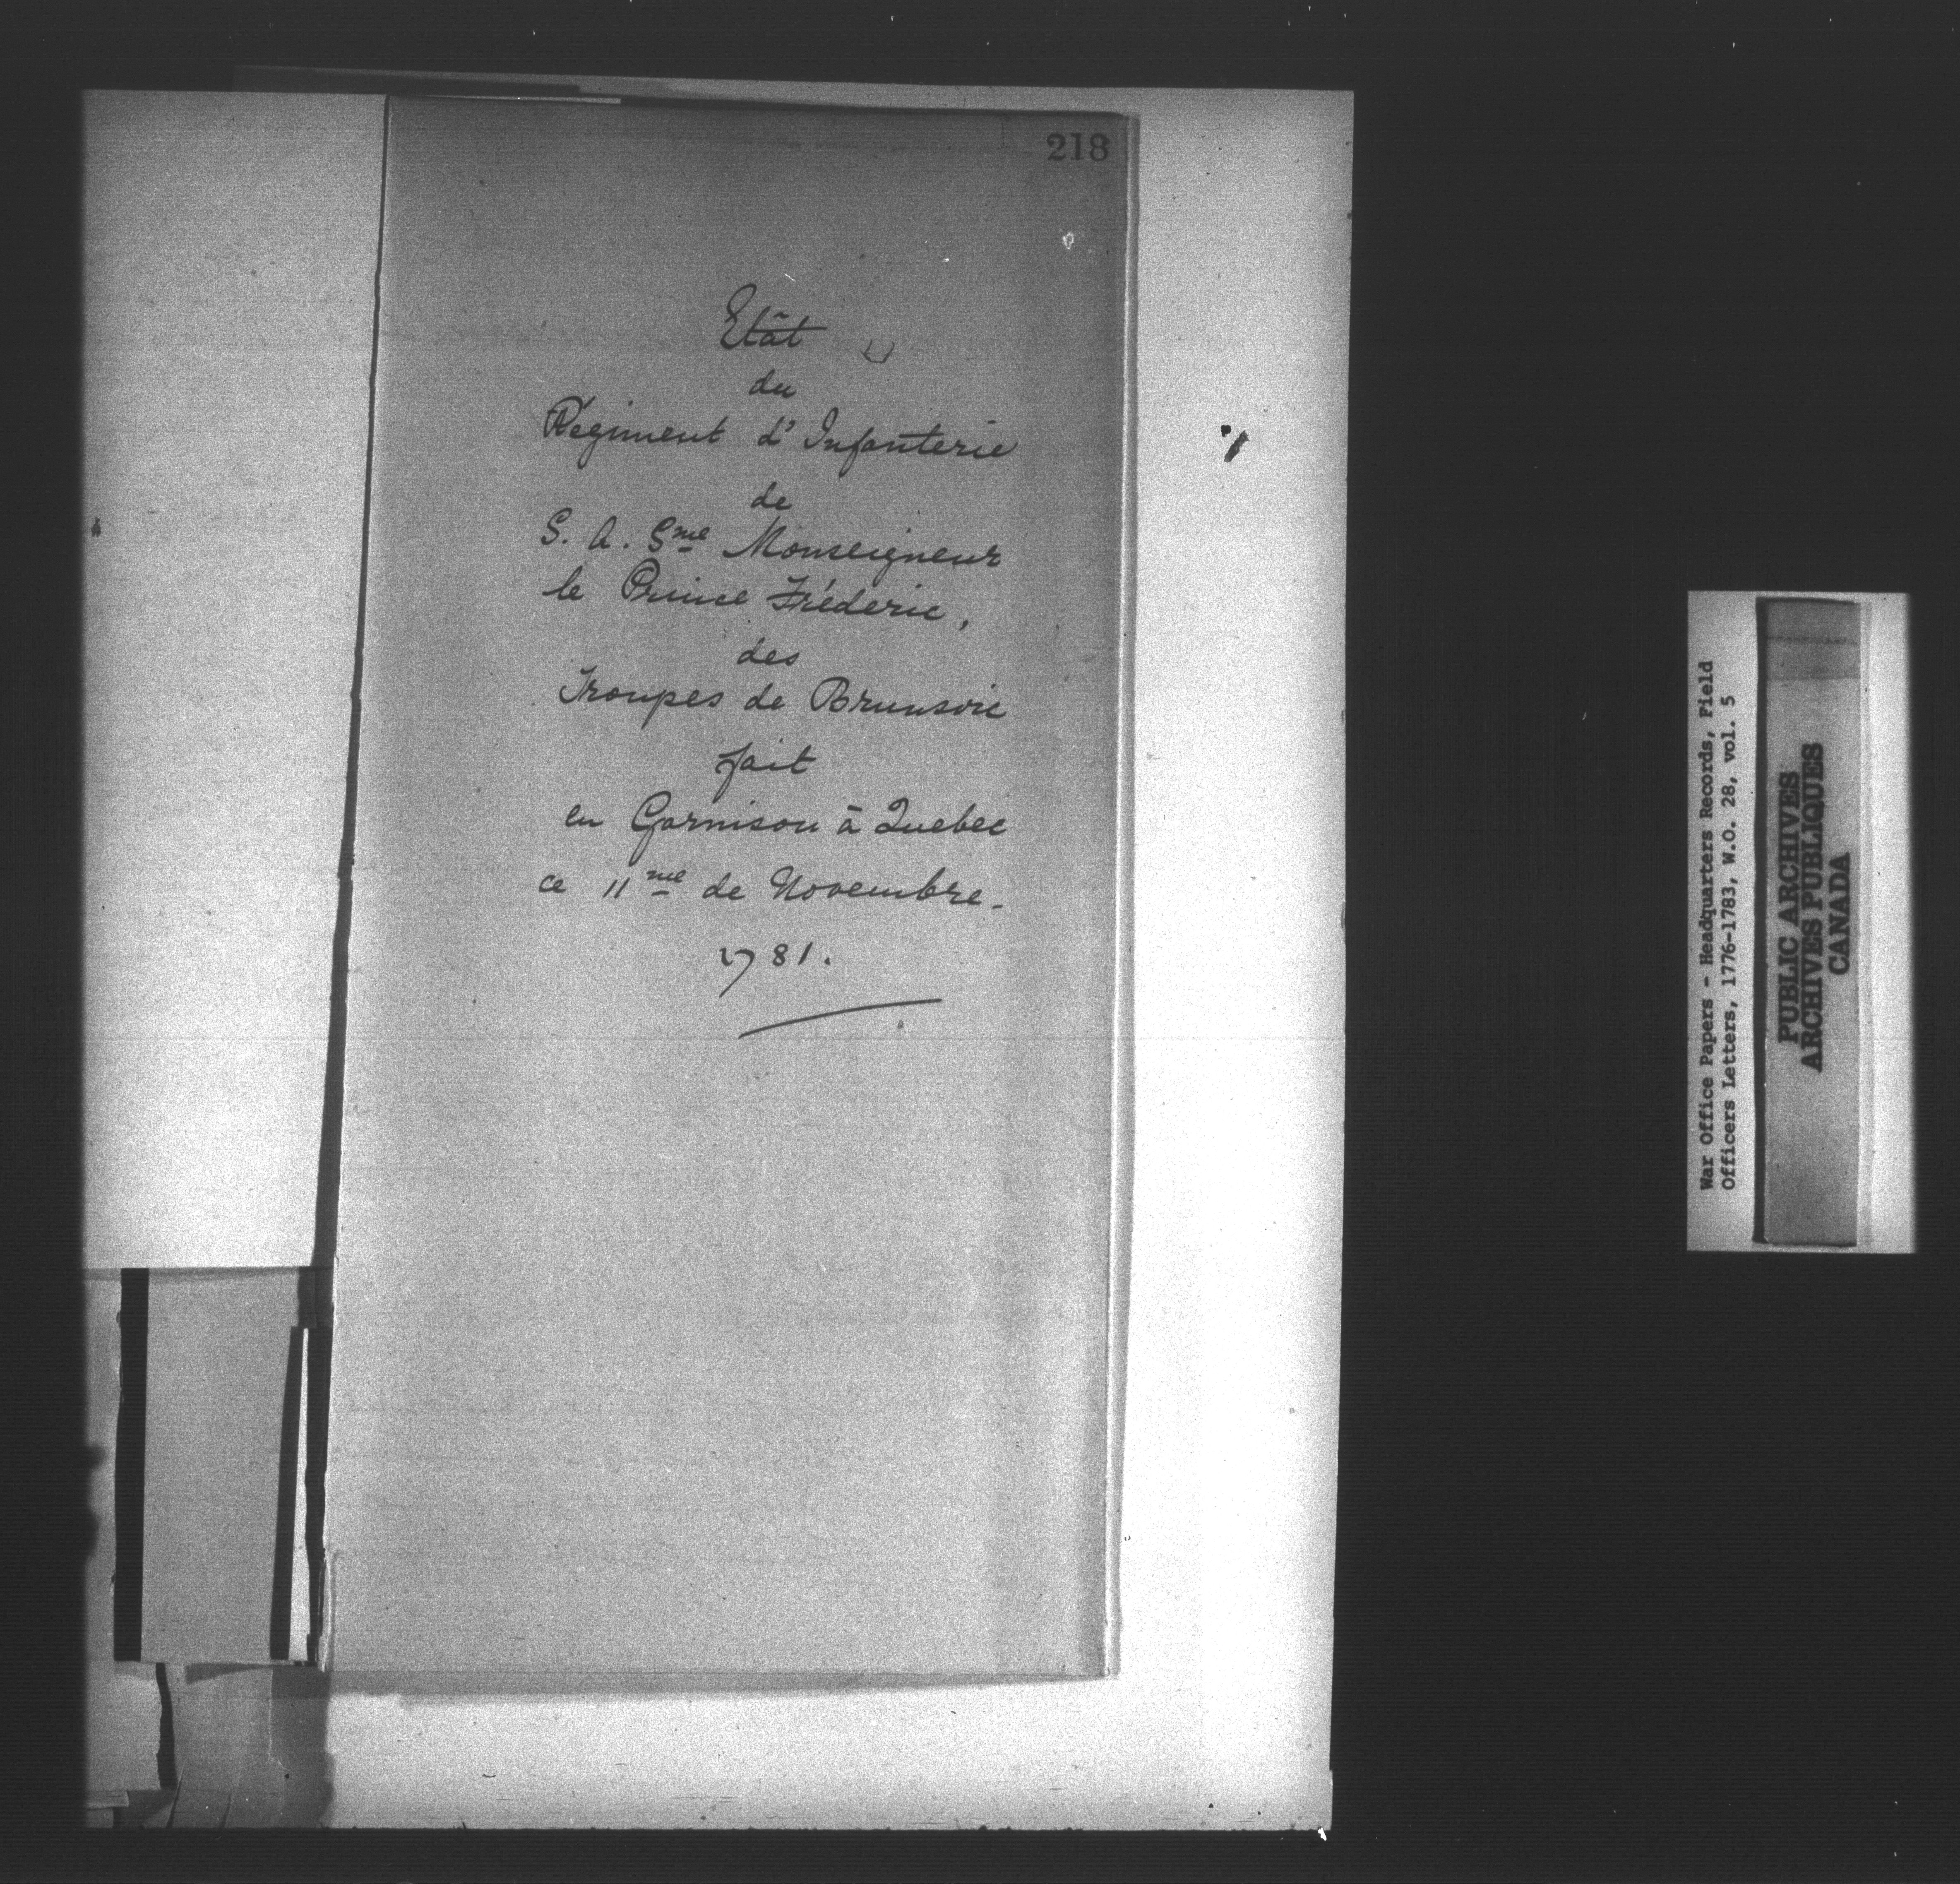 218
Etât
du
Régiment d'Infanterie
de
S. A. Sme Monseigneur
le Prince Fréderic,
des
Troupes de Brunsvic
fait
en Garnison à Quebec
ce 11me de Novembre.
1781.
War Office Papers - Headquarters Records, Field
Officers Letters, 1776-1783, W.O. 28, vol. 5
PUBLIC ARCHIVES
ARCHIVES PUBLIQUES
CANADA